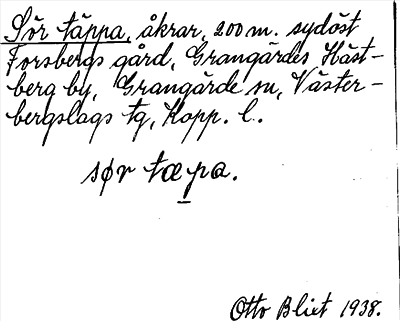 Sör täppa, åkrar, 200 m. sydöst
Forsbergs gård, Grangärdes Häst-
berg by, Grangärde sn, Väster-
bergslags tg, Kopp. l.
sør tæpa.
Otto Blixt 1938.